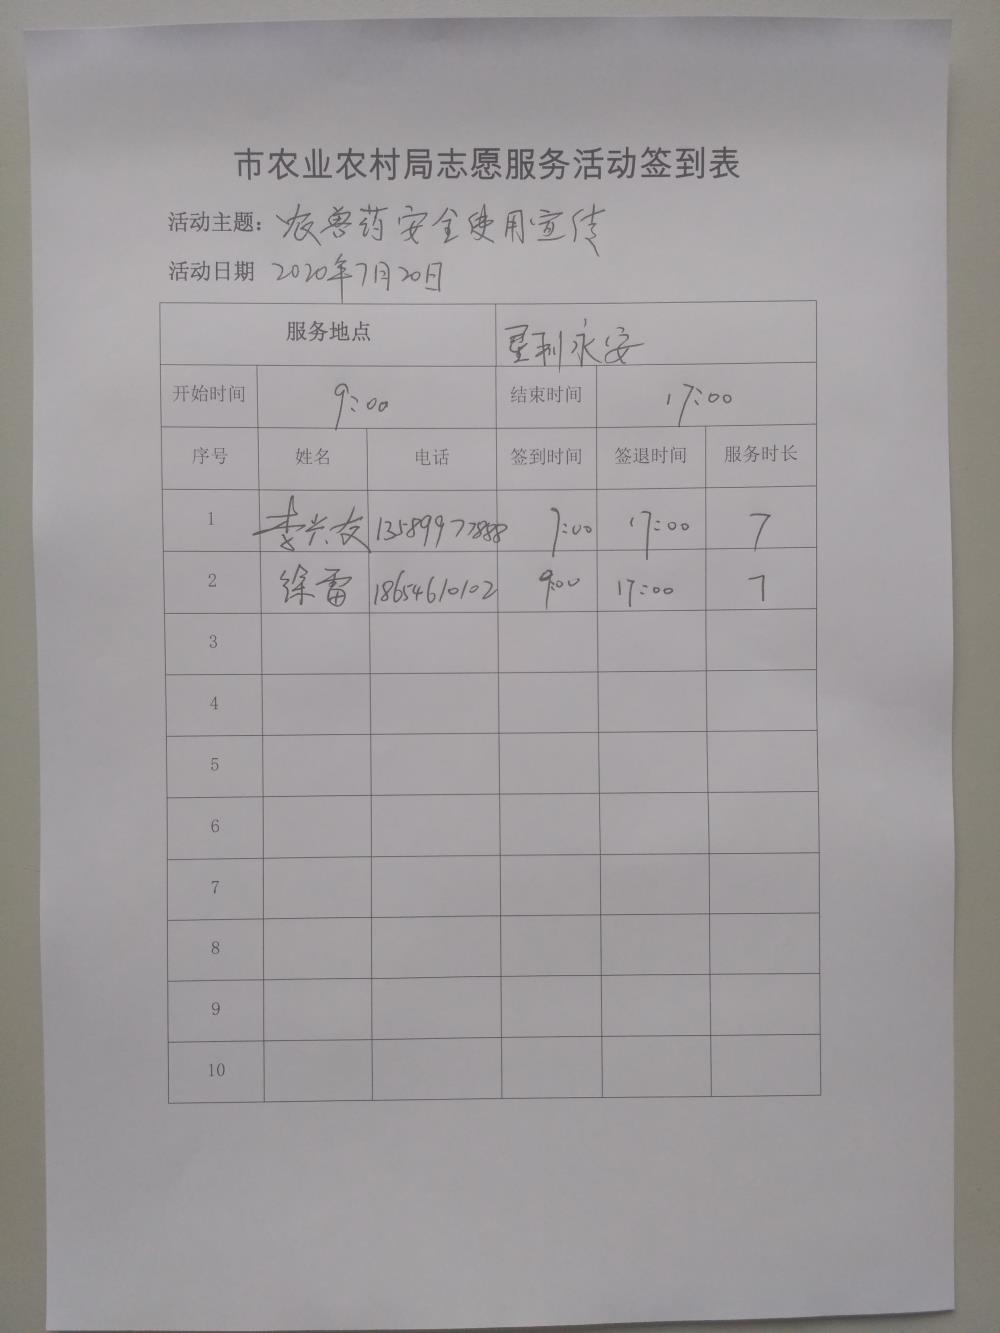 市农业农村局志愿服务活动签到表
活动主题：农兽药安全使用宣传
活动日期 2020年7月20日
服务地点 垦利永安
开始时间 9:00 结束时间 17:00
序号 姓名 电话 签到时间 签退时间 服务时长
1 李兴友 13589977888 9:00 17:00 7
2 徐雷 18654610102 9:00 17:00 7
3
4
5
6
7
8
9
10